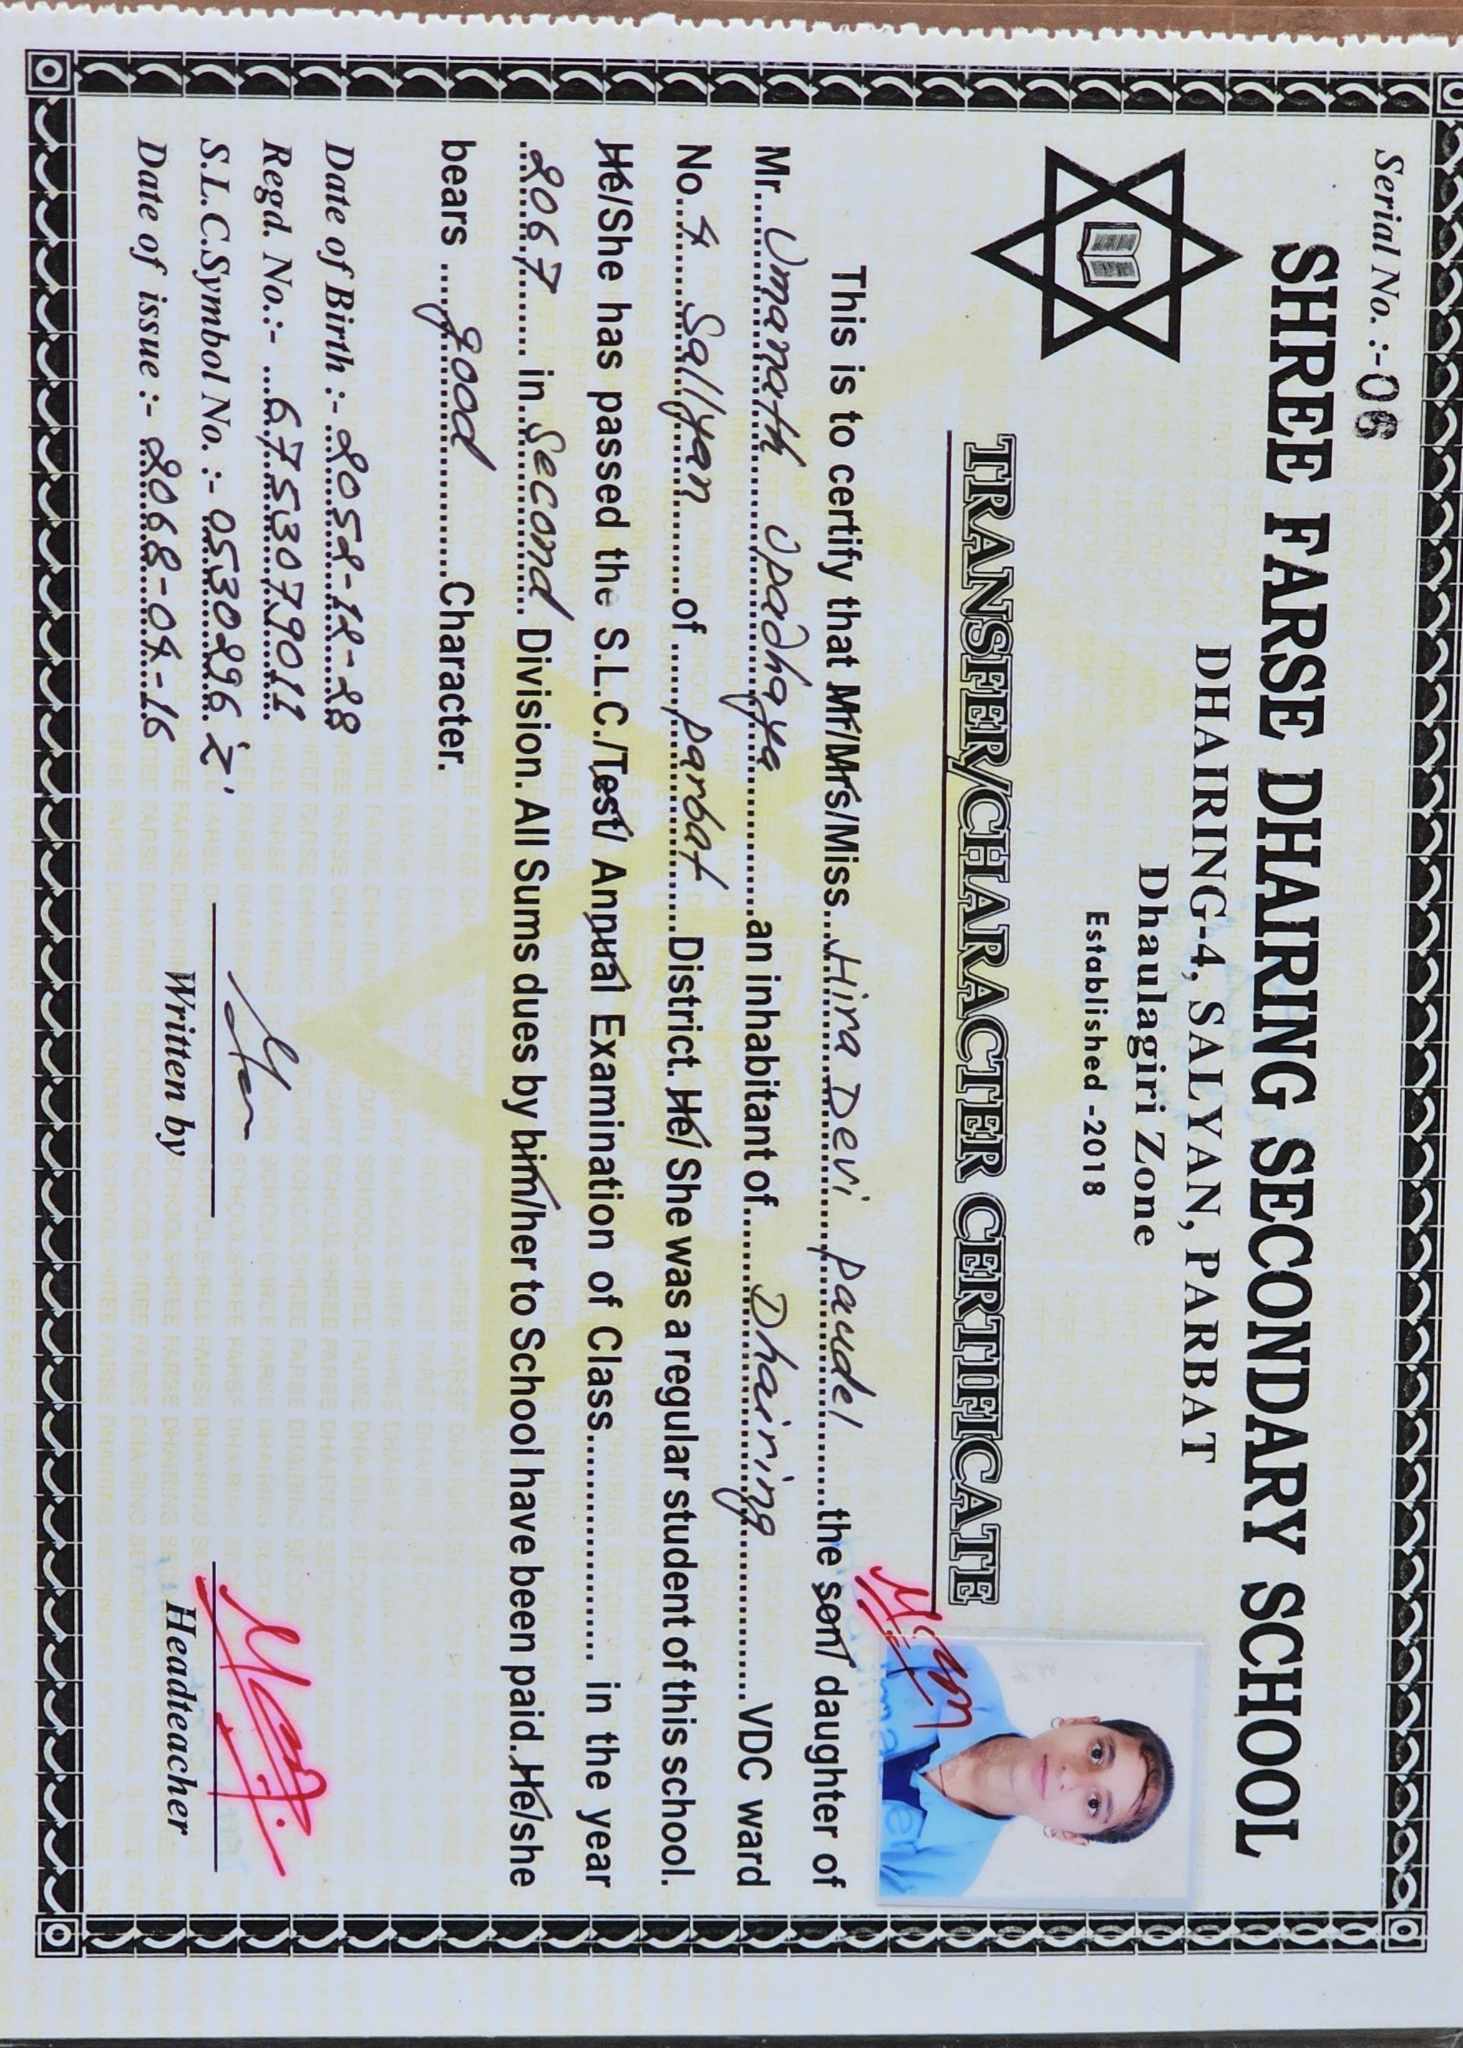 Serial No. :- 06
SHREE FARSE DHAIRING SECONDARY SCHOOL
DHAIRING-4, SALYAN, PARBAT
Dhaulagiri Zone
Established -2018
TRANSFER/CHARACTER CERTIFICATE
This is to certify that Mr/Mrs/Miss...Hira Devi paudel......the son/ daughter of
Mr....Umanath Upadhaya............an inhabitant of......Dhairing............VDC ward
No..4.....Sallyan........of......parbat......District. He/ She was a regular student of this school.
He/She has passed the S.L.C./Test/ Annual Examination of Class........................ in the year
...2067...... in..Second. Division. All Sums dues by him/her to School have been paid. He/she
bears ....good..........Character.
Date of Birth :- 2052-12-28
Regd. No.:- ...6753079011
S.L.C.Symbol No. :- 0530296 'Z'
Date of issue :- 2068-04-16
Written by
Headteacher